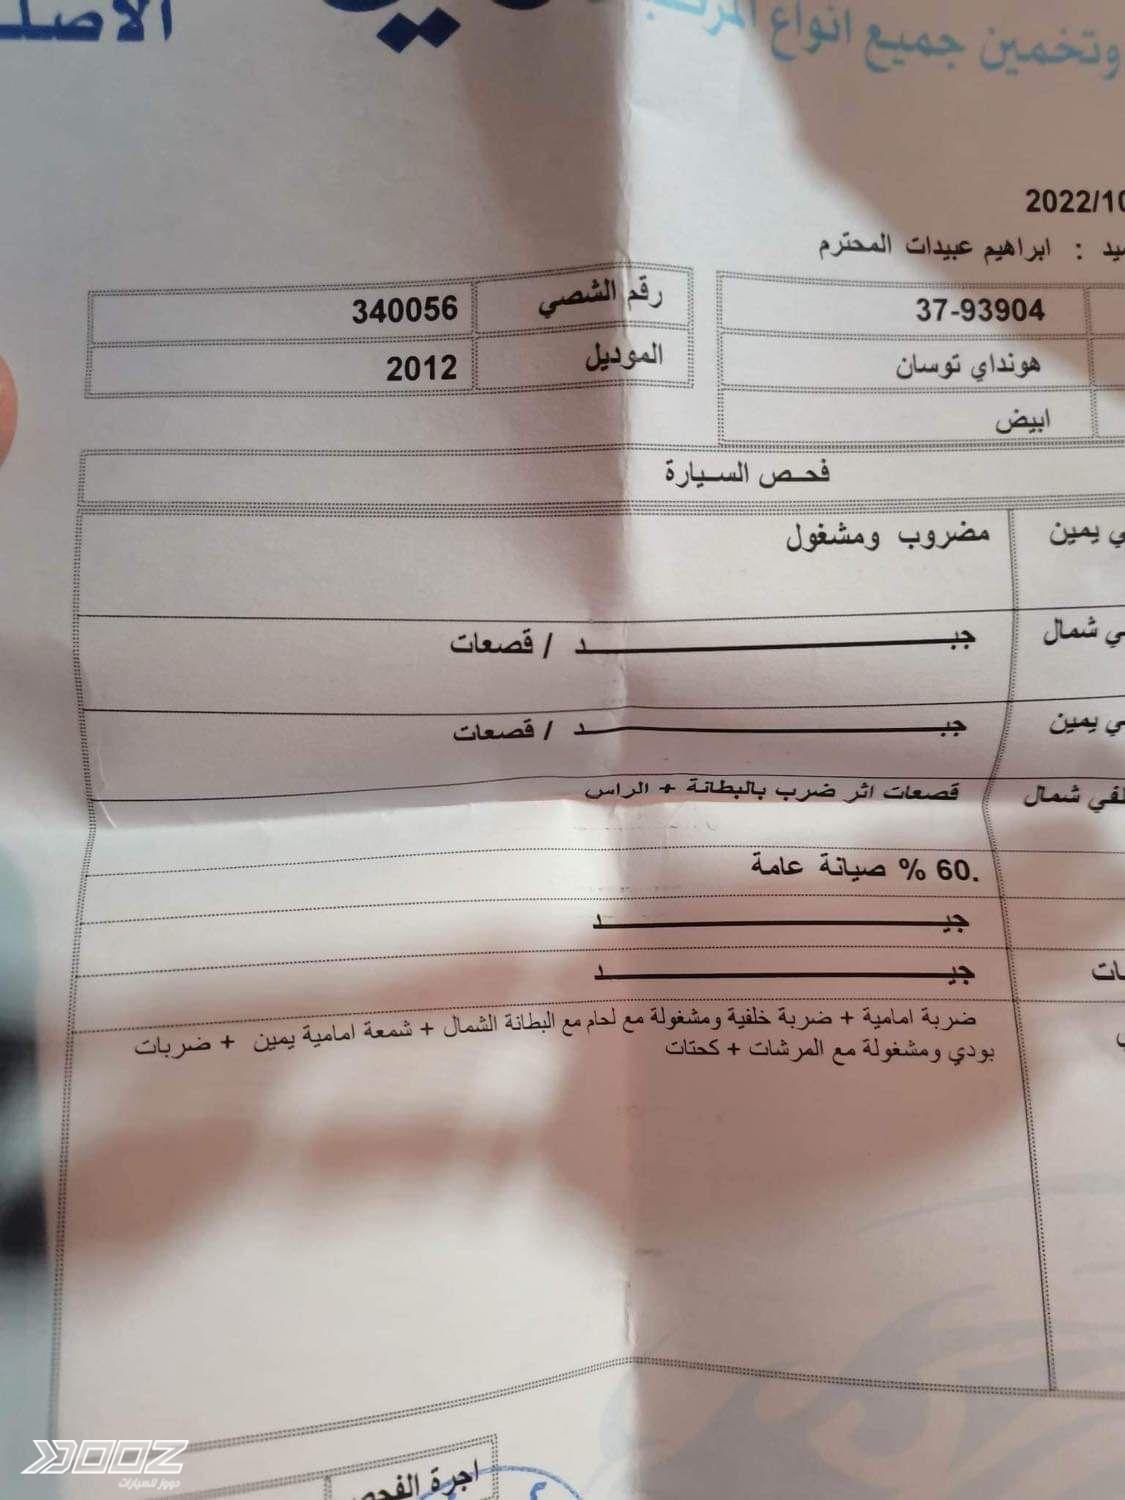 الاصلـ
وتخمين جميع انواع المركبـ
2022/10
يد : ابراهيم عبيدات المحترم
37-93904
رقم الشصي 340056
هونداي توسان
الموديل 2012
ابيض
فحص السيارة
ي يمين مضروب ومشغول
ي شمال جيــــد / قصعات
ي يمين جيــــد / قصعات
لفي شمال قصعات اثر ضرب بالبطانة + الراس
60 % صيانة عامة.
جيــــد
ات جيــــد
ضربة امامية + ضربة خلفية ومشغولة مع لحام مع البطانة الشمال + شمعة امامية يمين + ضربات
بودي ومشغولة مع المرشات + كحتات
اجرة الفحص
DOOZ
دووز للسيارات